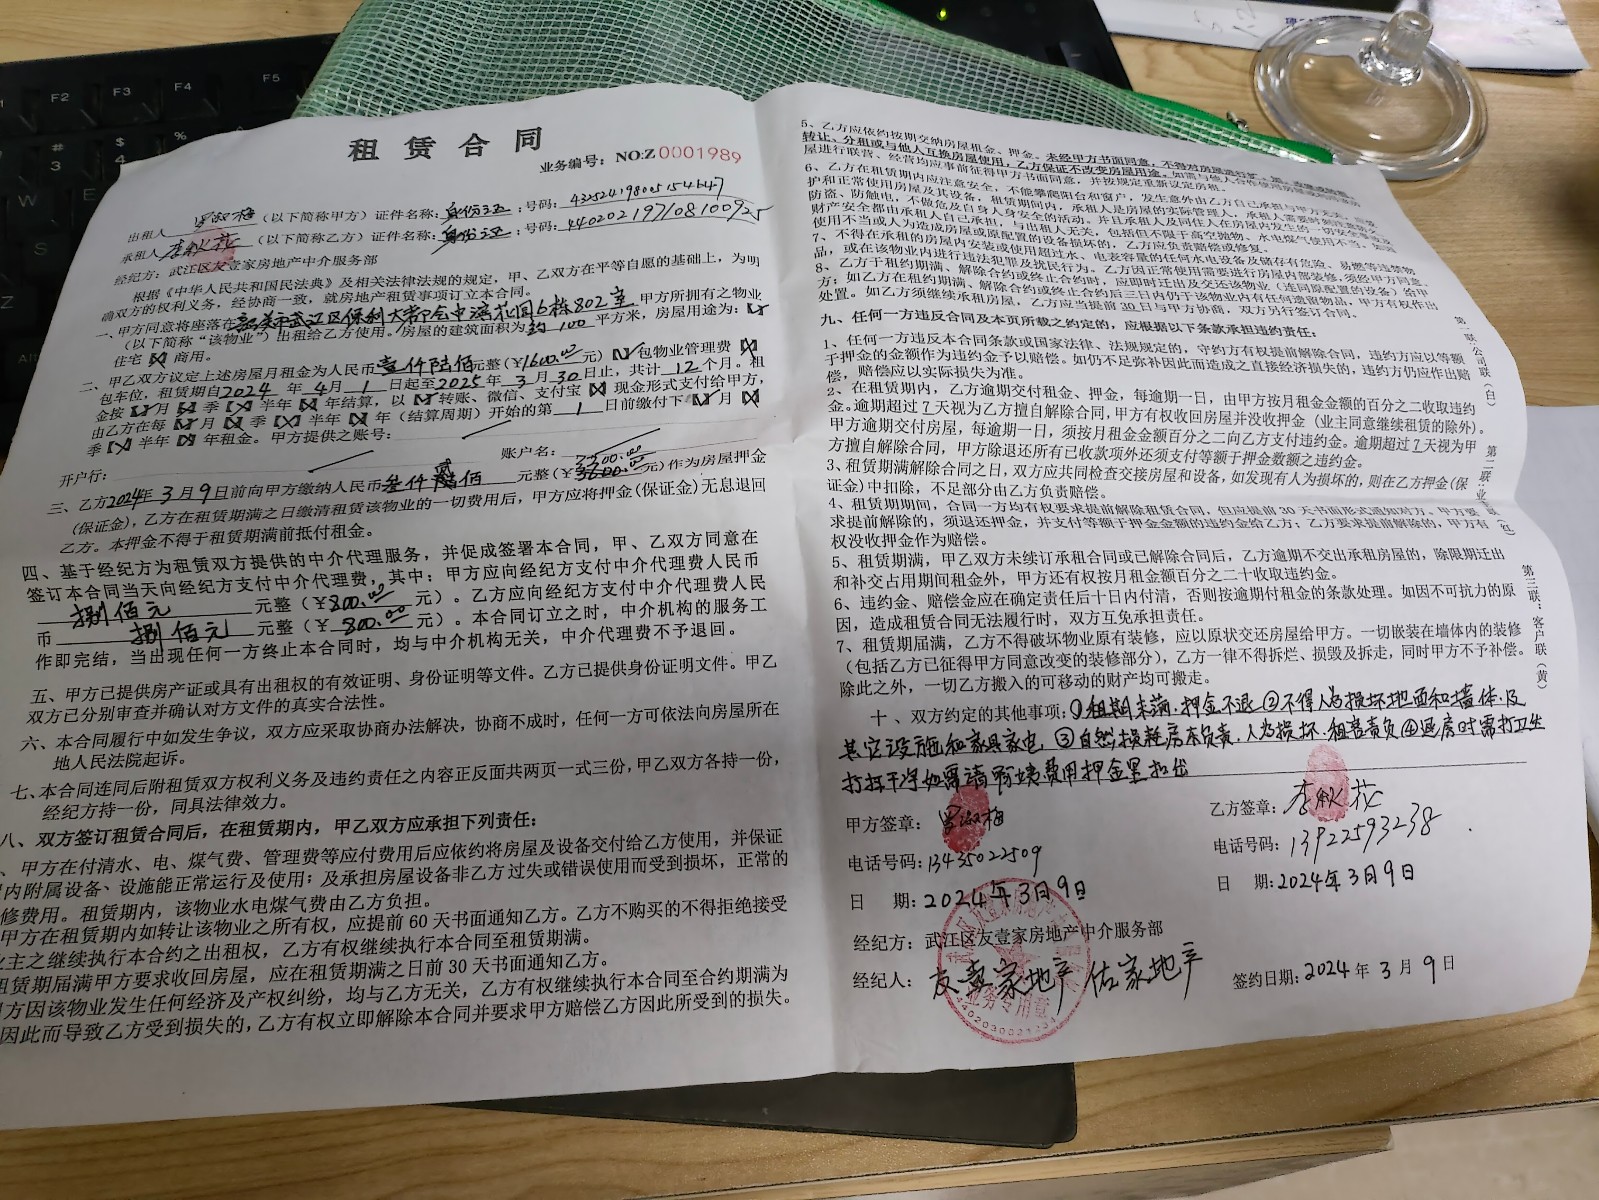 租赁合同
业务编号：NO:Z 0001989
出租人（以下简称甲方）证件名称：身份证；号码：
承租人（以下简称乙方）证件名称：身份证；号码：440202197108100925
经纪方：武江区友壹家房地产中介服务部
根据《中华人民共和国民法典》及相关法律法规的规定，甲、乙双方在平等自愿的基础上，为明
确双方的权利义务，经协商一致，就房地产租赁事项订立本合同。
一、甲方同意将座落在韶关市武江区保利大都会中湾花园6栋802室，甲方所拥有之物业
（以下简称“该物业”）出租给乙方使用。房屋的建筑面积为约100平方米，房屋用途为：
住宅 商用。
二、甲乙双方议定上述房屋月租金为人民币壹仟陆佰元整（¥1600.00元） 包物业管理费
包车位，租赁期自2024年4月1日起至2025年3月30日止，共计12个月。租
金按 月 季 半年 年结算，以 转账、微信、支付宝 现金形式支付给甲方，
由乙方在每 月 季 半年 年（结算周期）开始的第1日前缴付下 月
季 半年 年租金。甲方提供之账号：
开户行： 账户名：
三、乙方2024年3月9日前向甲方缴纳人民币叁仟 佰元整（¥ 元）作为房屋押金
（保证金），乙方在租赁期满之日缴清租赁该物业的一切费用后，甲方应将押金(保证金)无息退回
乙方。本押金不得于租赁期满前抵付租金。
四、基于经纪方为租赁双方提供的中介代理服务，并促成签署本合同，甲、乙双方同意在
签订本合同当天向经纪方支付中介代理费，其中：甲方应向经纪方支付中介代理费人民币
捌佰元 元整（¥800.00元）。乙方应向经纪方支付中介代理费人民
币 捌佰元 元整（¥800.00元）。本合同订立之时，中介机构的服务工
作即完结，当出现任何一方终止本合同时，均与中介机构无关，中介代理费不予退回。
五、甲方已提供房产证或具有出租权的有效证明、身份证明等文件。乙方已提供身份证明文件。甲乙
双方已分别审查并确认对方文件的真实合法性。
六、本合同履行中如发生争议，双方应采取协商办法解决，协商不成时，任何一方可依法向房屋所在
地人民法院起诉。
七、本合同连同后附租赁双方权利义务及违约责任之内容正反面共两页一式三份，甲乙双方各持一份，
经纪方持一份，同具法律效力。
八、双方签订租赁合同后，在租赁期内，甲乙双方应承担下列责任：
、甲方在付清水、电、煤气费、管理费等应付费用后应依约将房屋及设备交付给乙方使用，并保证
内附属设备、设施能正常运行及使用；及承担房屋设备非乙方过失或错误使用而受到损坏，正常的
修费用。租赁期内，该物业水电煤气费由乙方负担。
甲方在租赁期内如转让该物业之所有权，应提前60天书面通知乙方。乙方不购买的不得拒绝接受
业主之继续执行本合约之出租权，乙方有权继续执行本合同至租赁期满。
租赁期届满甲方要求收回房屋，应在租赁期满之日前30天书面通知乙方。
方因该物业发生任何经济及产权纠纷，均与乙方无关，乙方有权继续执行本合同至合约期满为
因此而导致乙方受到损失的，乙方有权立即解除本合同并要求甲方赔偿乙方因此所受到的损失。
5、乙方应依约按期交纳房屋租金、押金。未经甲方书面同意，不得对房屋进行扩、加、改建或将
转让、分租或与他人互换房屋使用，乙方保证不改变房屋用途。如需与他人合作使用
屋进行联营、经营均应事前征得甲方书面同意，并按规定重新议定房租。
6、乙方在租赁期内应注意安全，不能攀爬阳台和窗户，发生意外由乙方自己承担与甲方无关，
护和正常使用房屋及其设备，租赁期间内，承租人是房屋的实际管理人，承租人需要时刻注意防火、
防盗、防触电，不做危及自身人身安全的活动。并且承租人及同住人在房屋内发生的一切
财产安全都由承租人自己承担，与出租人无关，包括但不限于高空抛物、水电煤气使用不当。如因
使用不当或人为造成房屋或原配置的设备损坏的，乙方应负责赔偿或修复。
7、不得在承租的房屋内安装或使用超过水、电表容量的任何水电设备及储存有危险、易燃等违禁物
品，或在该物业内进行违法犯罪及扰民行为。乙方因正常使用需要进行房屋内部装修，须经甲方同意。
8、乙方于租约期满、解除合约或终止合约时，应即时迁出及交还该物业（连同原配置的设备）给甲
方；如乙方在租约期满、解除合约或终止合约后三日内仍于该物业内有任何遗留物品，甲方有权作出
处置。如乙方须继续承租房屋，乙方应当提前30日与甲方协商，双方另行签订合同。
九、任何一方违反合同及本页所载之约定的，应根据以下条款承担违约责任：
1、任何一方违反本合同条款或国家法律、法规规定的，守约方有权提前解除合同，违约方应以等额
于押金的金额作为违约金予以赔偿。如仍不足弥补因此而造成之直接经济损失的，违约方仍应作出赔
偿，赔偿应以实际损失为准。
2、在租赁期内，乙方逾期交付租金、押金，每逾期一日，由甲方按月租金金额的百分之二收取违约
金。逾期超过7天视为乙方擅自解除合同，甲方有权收回房屋并没收押金（业主同意继续租赁的除外）。
甲方逾期交付房屋，每逾期一日，须按月租金金额百分之二向乙方支付违约金。逾期超过7天视为甲
方擅自解除合同，甲方除退还所有已收款项外还须支付等额于押金数额之违约金。
3、租赁期满解除合同之日，双方应共同检查交接房屋和设备，如发现有人为损坏的，则在乙方押金(保
证金)中扣除，不足部分由乙方负责赔偿。
4、租赁期期间，合同一方均有权要求提前解除租赁合同，但应提前30天书面形式通知对方。甲方要
求提前解除的，须退还押金，并支付等额于押金金额的违约金给乙方；乙方要求提前解除的，甲方有
权没收押金作为赔偿。
5、租赁期满，甲乙双方未续订承租合同或已解除合同后，乙方逾期不交出承租房屋的，除限期迁出
和补交占用期间租金外，甲方还有权按月租金额百分之二十收取违约金。
6、违约金、赔偿金应在确定责任后十日内付清，否则按逾期付租金的条款处理。如因不可抗力的原
因，造成租赁合同无法履行时，双方互免承担责任。
7、租赁期届满，乙方不得破坏物业原有装修，应以原状交还房屋给甲方。一切嵌装在墙体内的装修
（包括乙方已征得甲方同意改变的装修部分），乙方一律不得拆烂、损毁及拆走，同时甲方不予补偿。
除此之外，一切乙方搬入的可移动的财产均可搬走。
十、双方约定的其他事项：①租期未满，押金不退②不得人为损坏地面和墙体及
其它设施和家具家电 ③自然损耗房东负责，人为损坏，租客责负④退房时需打卫生
打扫干净如需请 费用押金里扣出
甲方签章：
电话号码：13435022509
日 期：2024年3月9日
乙方签章：李秋花
电话号码：13922593238
日 期：2024年3月9日
经纪方：武江区友壹家房地产中介服务部
经纪人：友壹家地产 佑家地产
签约日期：2024年3月9日
业务专用章
第一联：公司联（白）
第二联：业
第三联：客户联（黄）
F2
F3
F4
F5